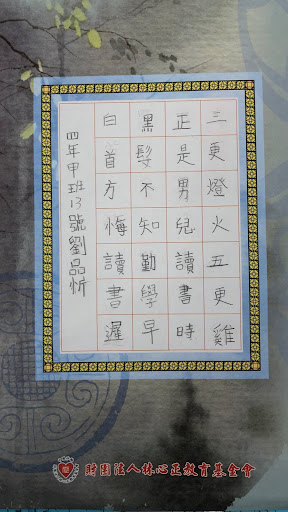 三更燈火五更雞
正是男兒讀書時
黑髮不知勤學早
白首方悔讀書遲
四年甲班13號劉品忻
財團法人林心正教育基金會